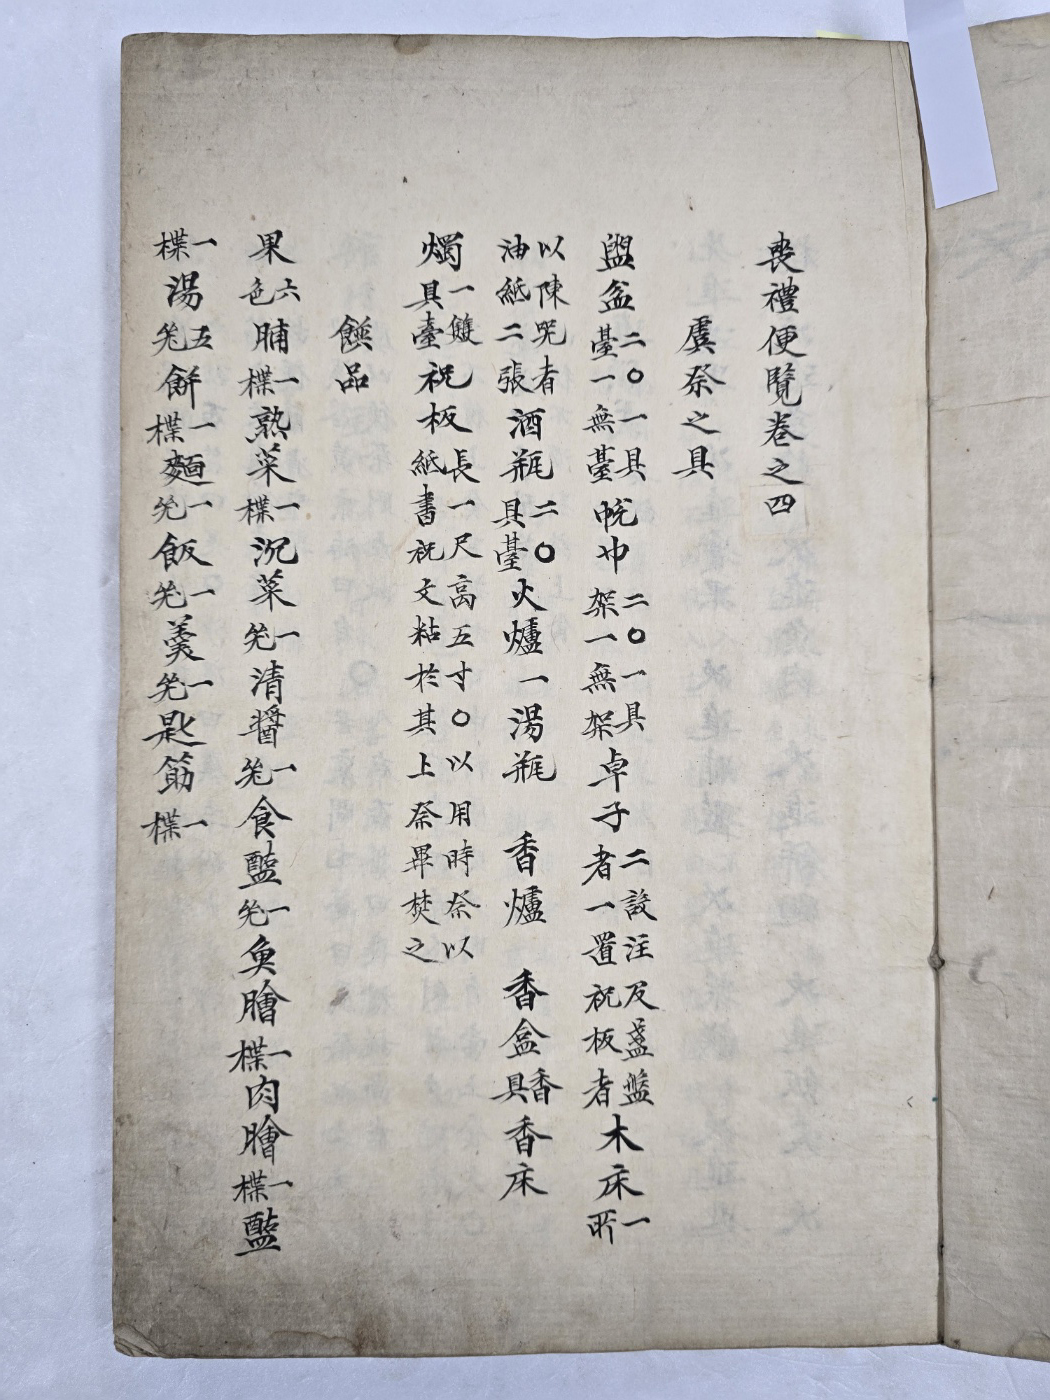 喪禮便覽卷之四
虞祭之具
盥盆二〇一具臺一無臺帨巾二〇一具架一無架卓子二設注及盞盤者一置祝板者木床一所
以陳器者油紙二張酒瓶二〇具臺火爐一湯瓶 香爐 香盒香具香床
燭一雙具臺祝板長一尺高五寸〇以用時祭以紙書祝文粘於其上祭畢焚之
饌品
果六色脯一楪熟菜一楪沉菜一器清醬一器食醢一器魚膾一楪肉膾一楪醢
一楪湯五器餅一楪麵一器飯一器羹一器匙筯一楪